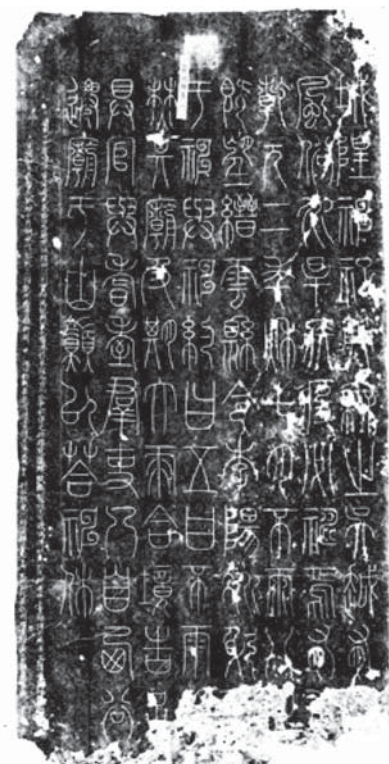 城隍神祀典無之吳越有
風俗水旱疾疫必禱焉有
乾元二年秋七月不雨八
既望縉雲縣令李陽冰躬
于神與神約曰五日不雨
焚其廟及期大雨合境告足
具官與耆耋群吏乃自西谷
遷廟于山巔以答神休